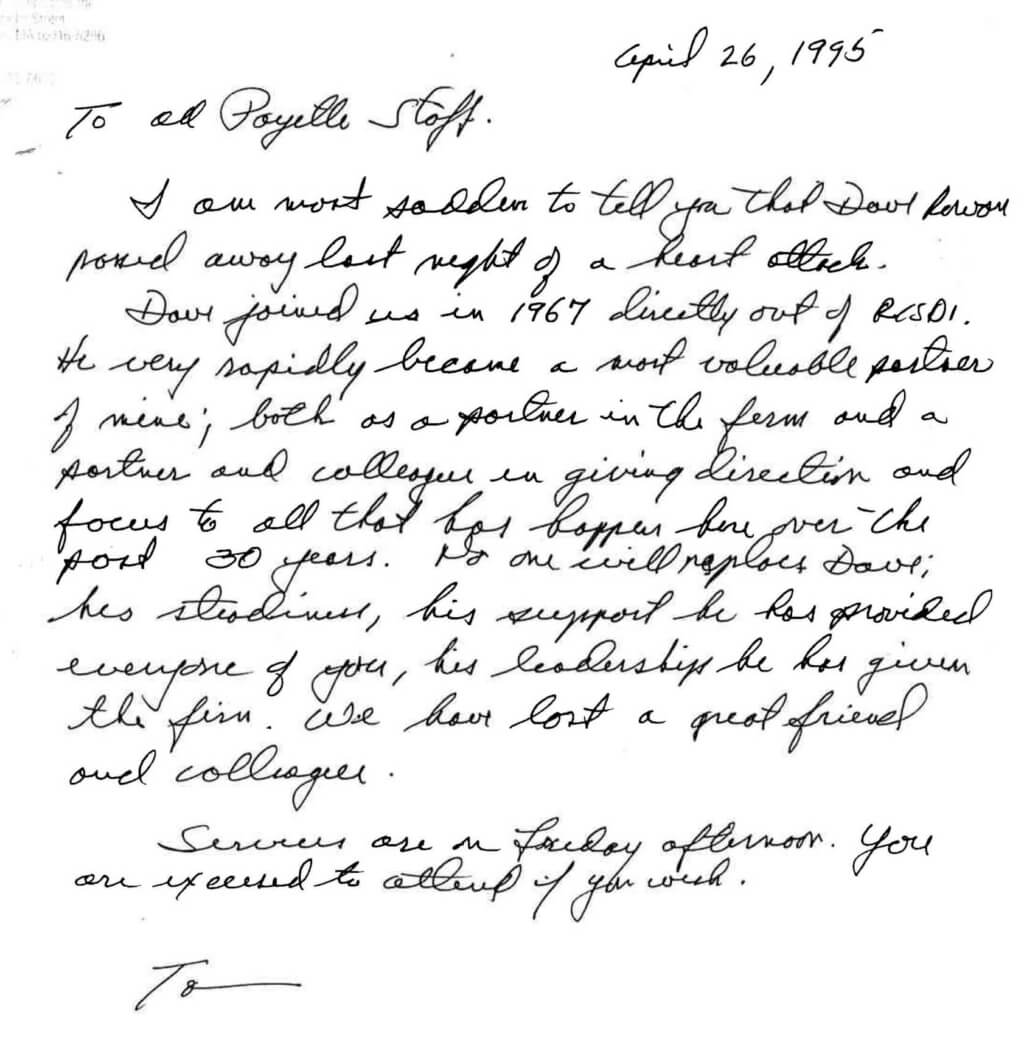 April 26, 1995
To all Payette Staff.
I am most sadden to tell you that Dave Rowan
passed away last night of a heart attack.
Dave joined us in 1967 directly out of RISD.
He very rapidly became a most valuable partner
of mine; both as a partner in the firm and a
partner and colleague in giving direction and
focus to all that has happen here over the
past 30 years. No one will replace Dave;
his steadiness, his support he has provided
everyone of you, his leadership he has given
the firm. We have lost a great friend
and colleague.
Services are on Friday afternoon. You
are excused to attend if you wish.
Tom